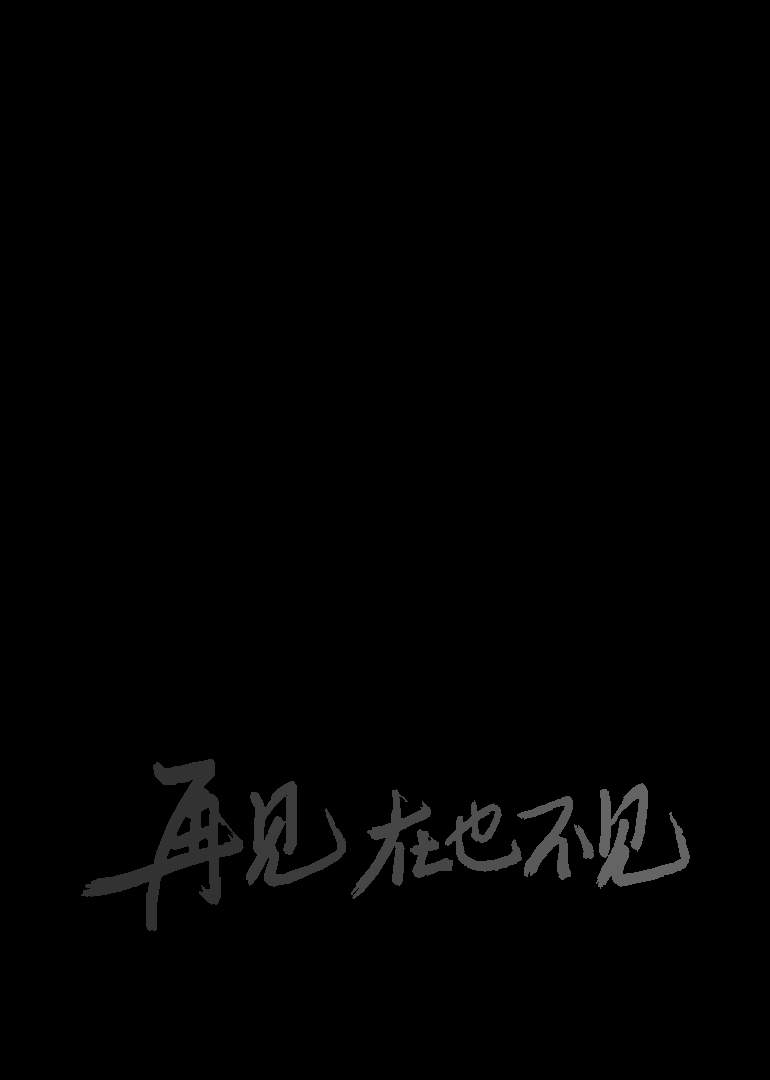 再见 在也不见